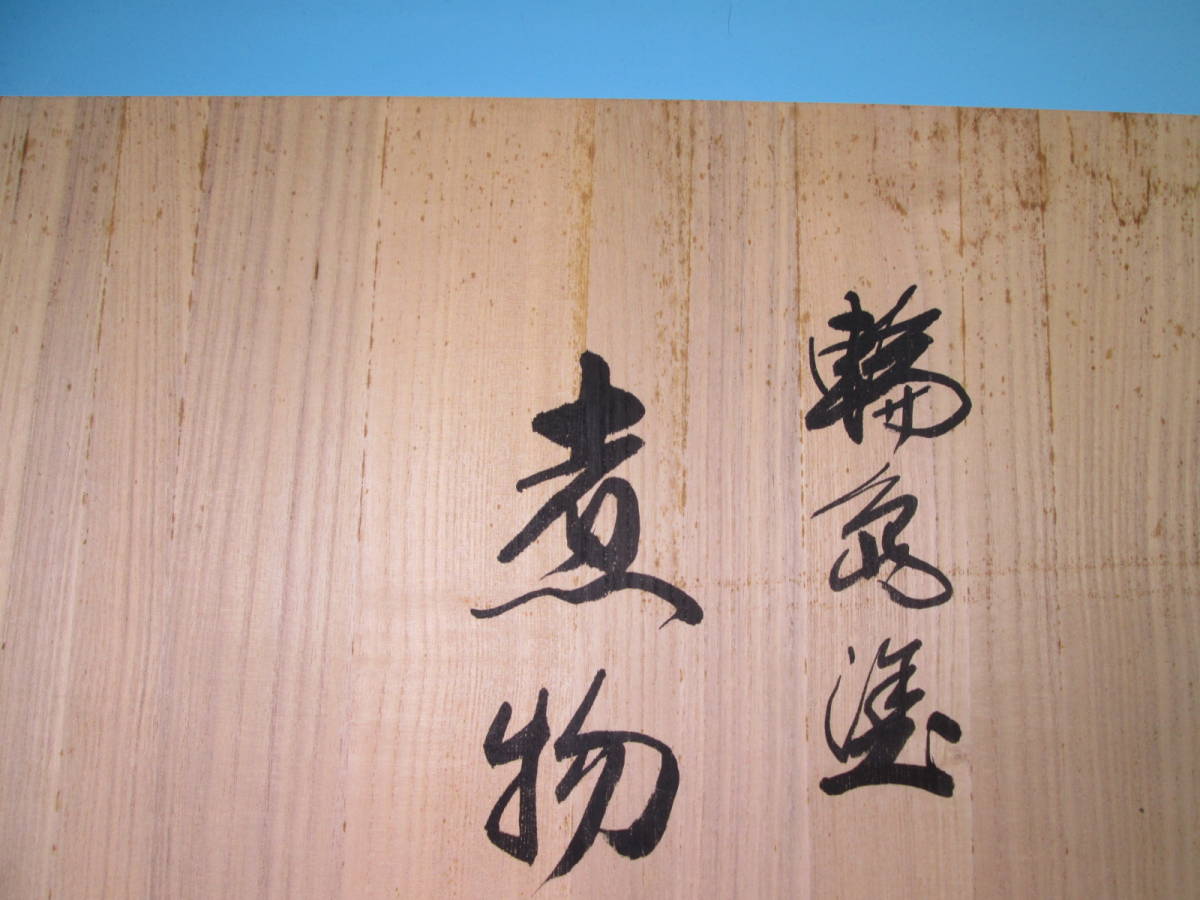 輪島塗
煮物